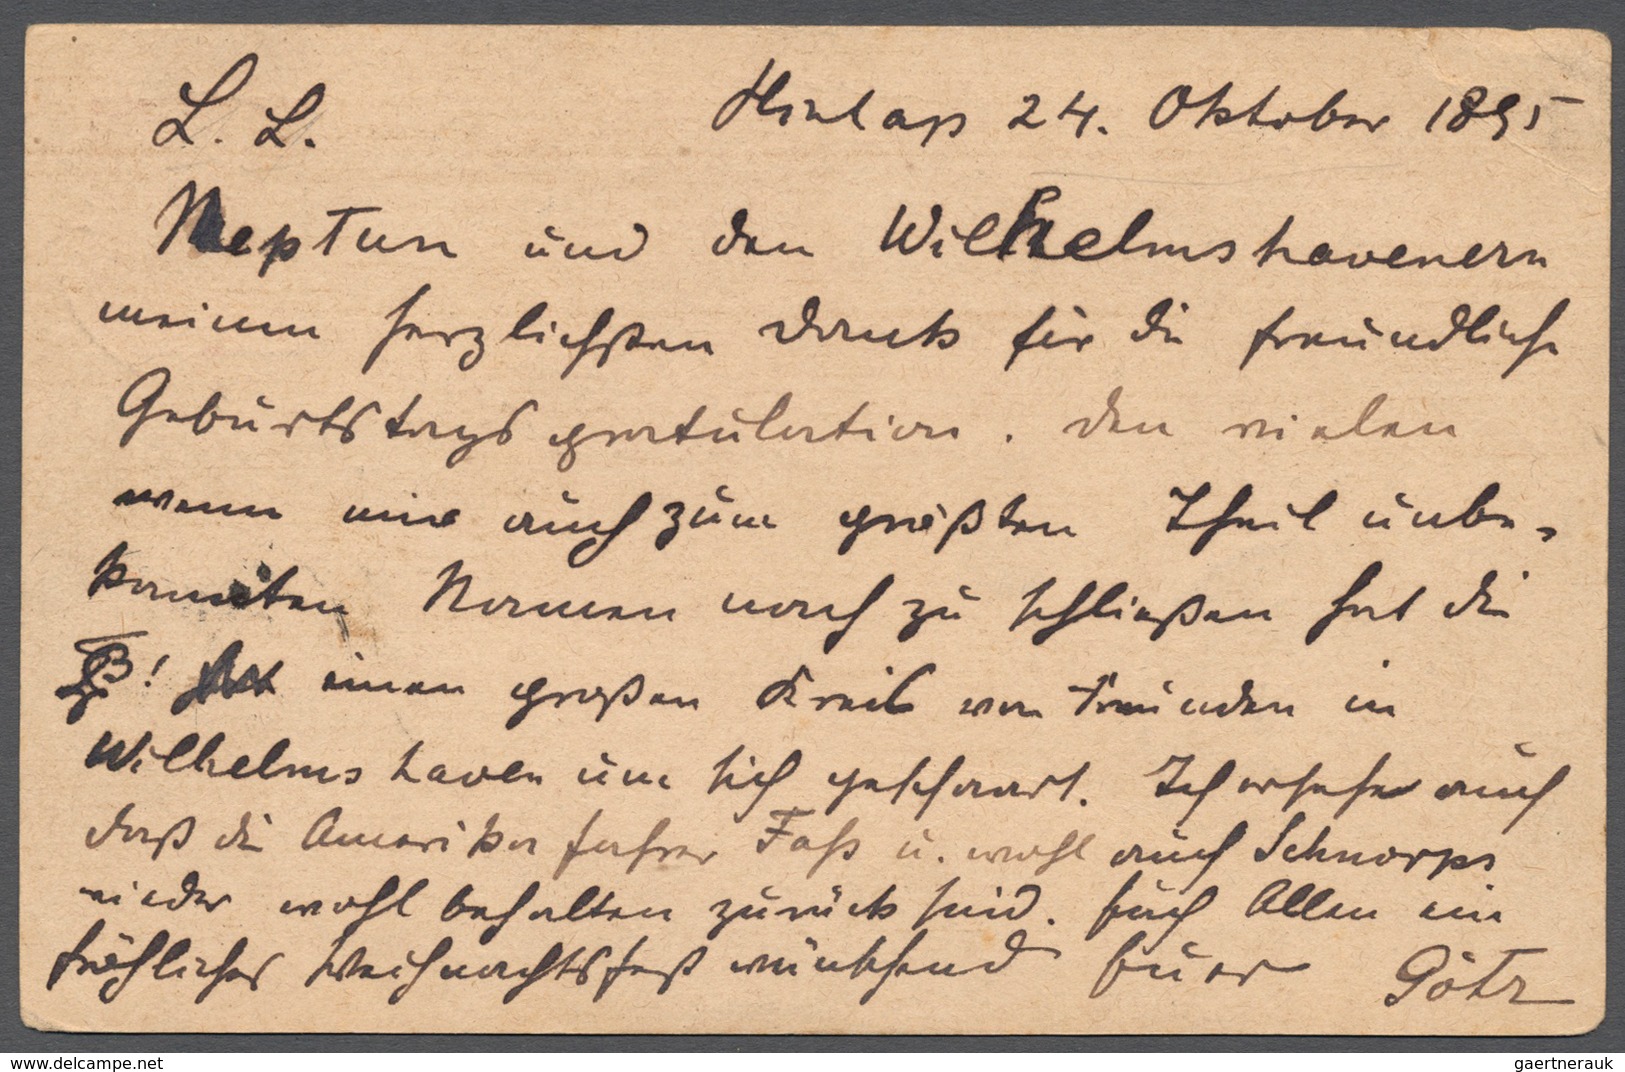 L. L.
24. Oktober 1895
Neptun und den Wilhelmshavenern
meinen herzlichsten Dank für die freundliche
Geburtstagsgratulation. Den vielen
wenn mir auch zum größten Theil unbe-
kannten Namen nach zu schließen hat die
! einen großen Kreis von Freunden in
Wilhelmshaven um sich geschaart. Ich ersehe auch
daß die Amerikafahrer Fass u. wohl auch Schnorps
wieder wohl behalten zurück sind. Euch Allen ein
fröhliches Weihnachtsfest wünschend Euer Götz
gaertnerauk